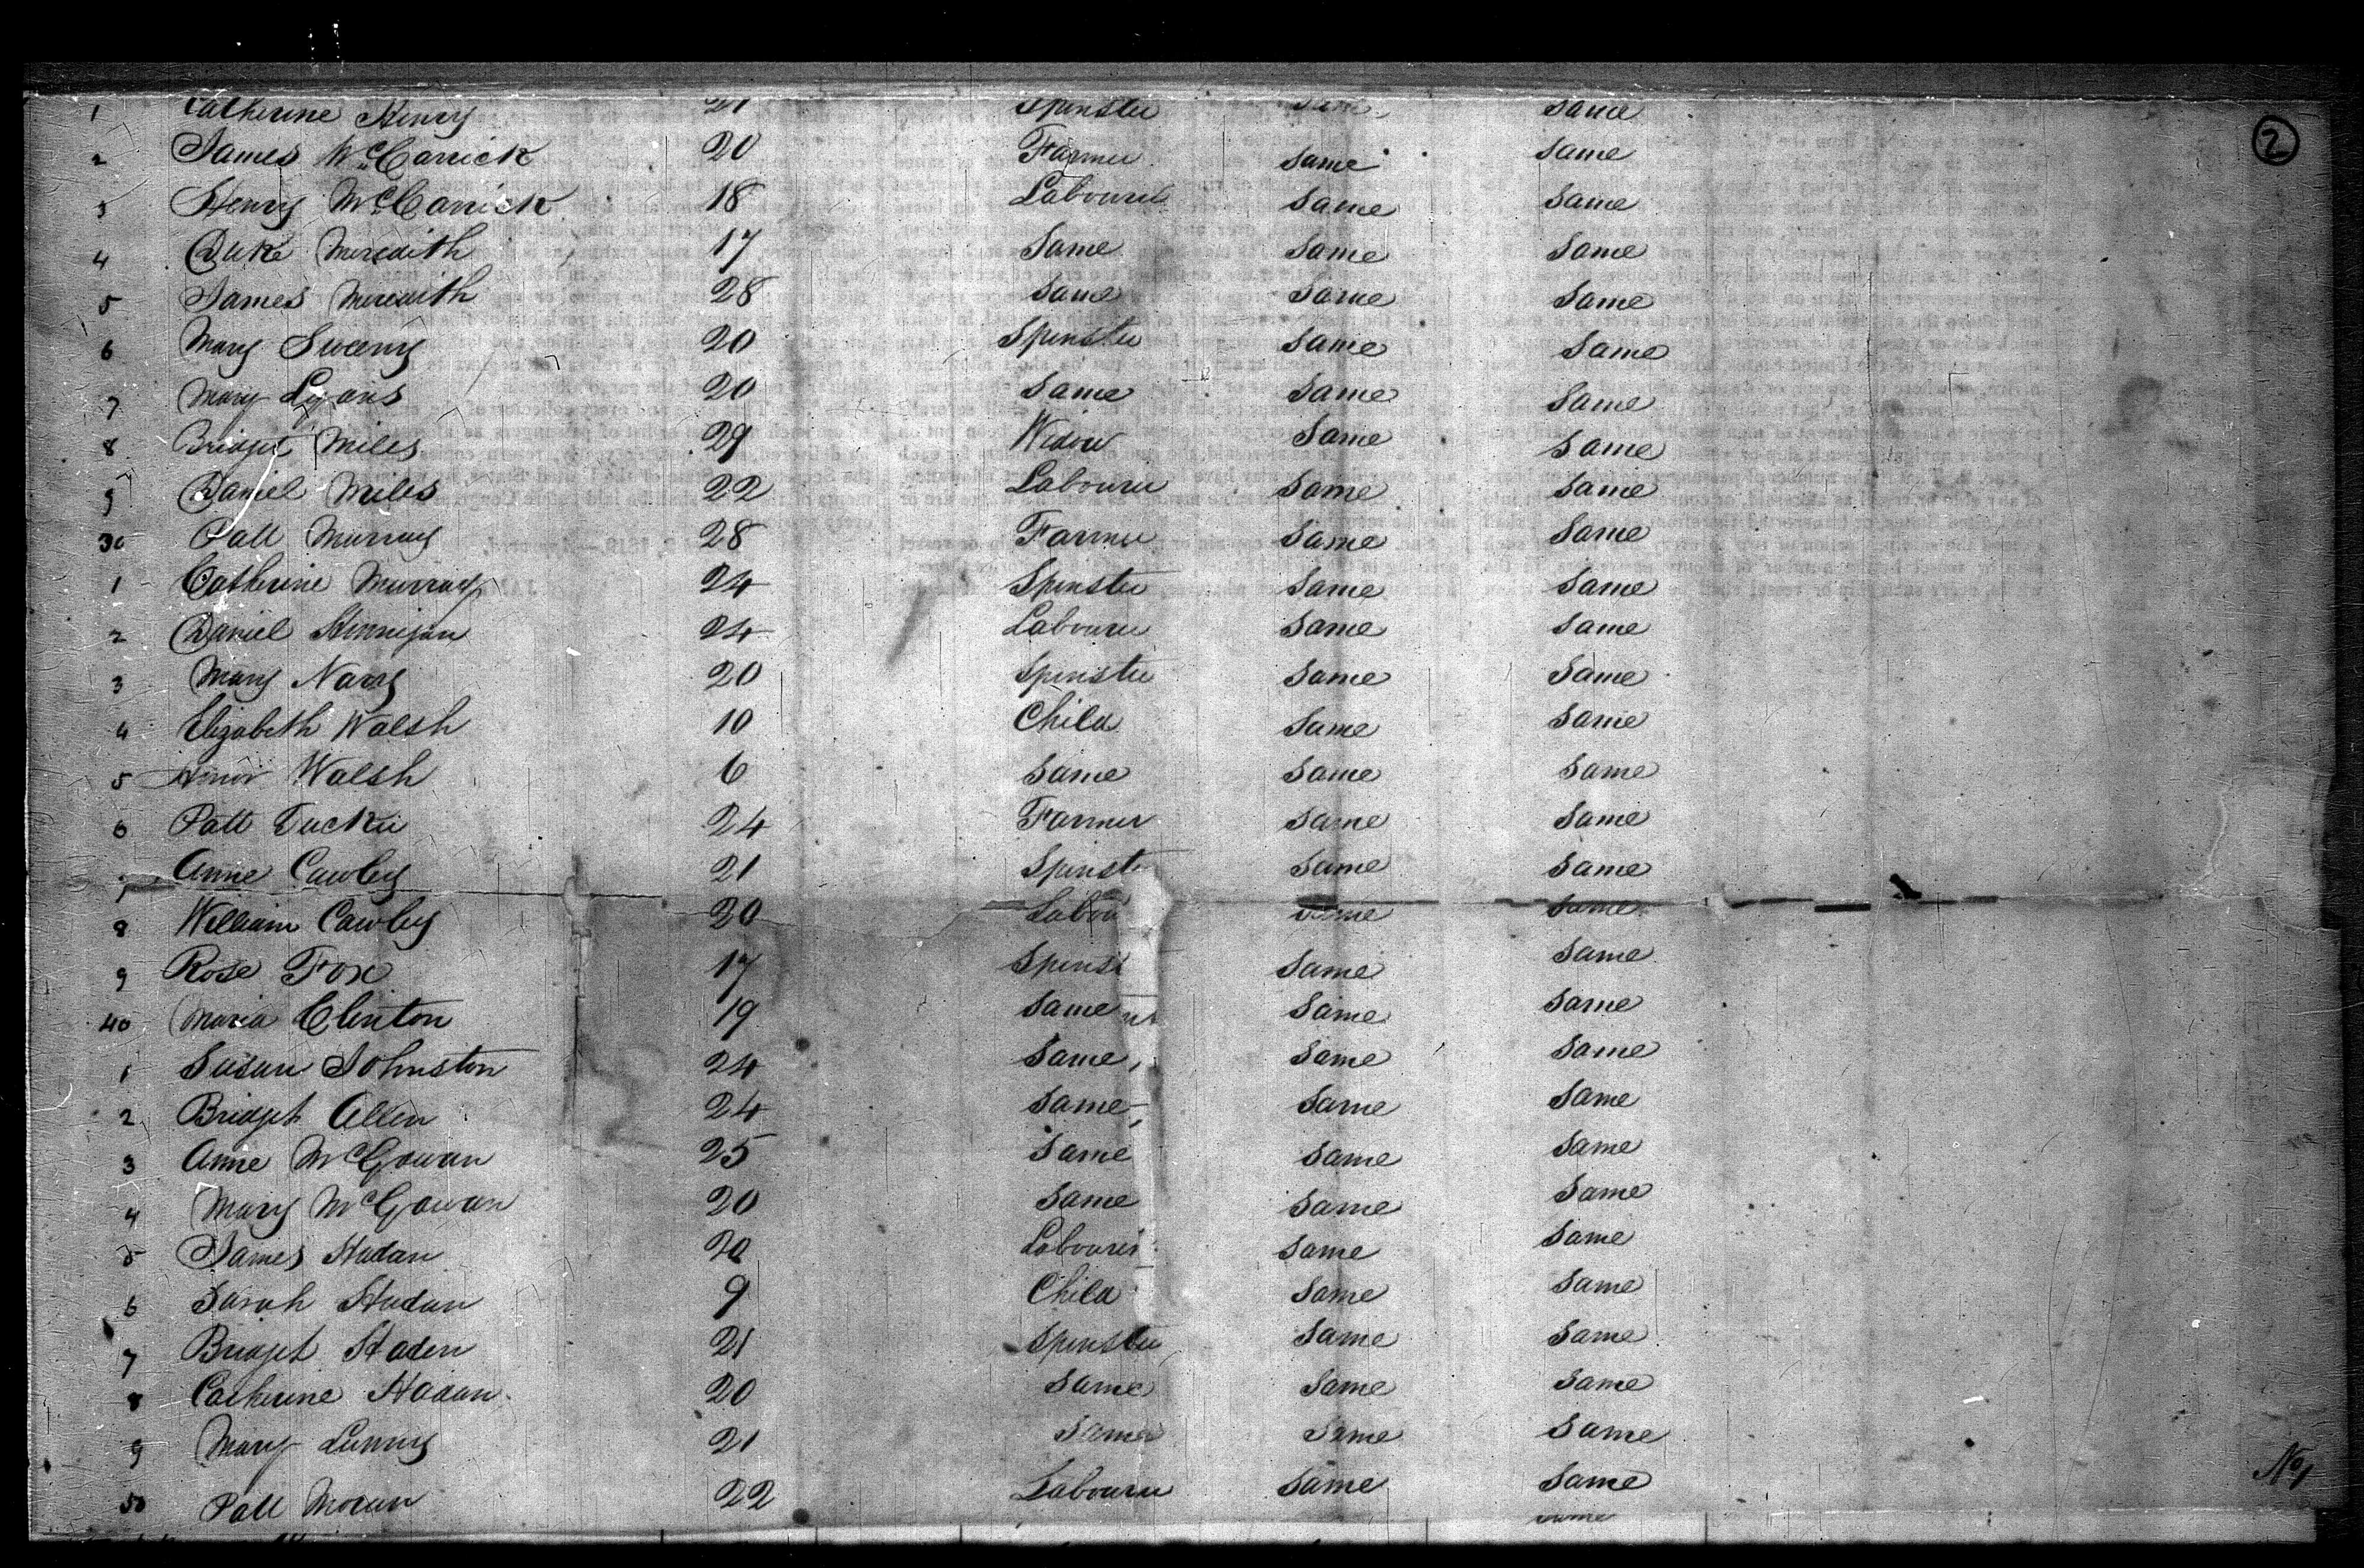 2
1 Catherine Henry 21 Spinster Same Same
2 James McCarrick 20 Farmer Same Same
3 Henry McCarrick 18 Labourer Same Same
4 Duke Meredith 17 Same Same Same
5 James Meredith 28 Same Same Same
6 Mary Sweeny 20 Spinster Same Same
7 Mary Lyons 20 Same Same Same
8 Bridget Miles 29 Widow Same Same
9 Daniel Miles 22 Labourer Same Same
30 Patt Murray 28 Farmer Same Same
1 Catherine Murray 24 Spinster Same Same
2 Daniel Hennigan 24 Labourer Same Same
3 Mary Nary 20 Spinster Same Same
4 Elizabeth Walsh 10 Child Same Same
5 Walsh 6 Same Same Same
6 Patt Tucker 24 Farmer Same Same
7 Anne Cawley 21 Spinst Same Same
8 William Cawley 20 Labou Same Same
9 Rose Fox 17 Spinst Same Same
40 Maria Clinton 19 Same Same Same
1 Susan Johnston 24 Same Same Same
2 Bridget Allen 24 Same Same Same
3 Anne McGowan 25 Same Same Same
4 Mary McGowan 20 Same Same Same
5 James Hadan 20 Labourer Same Same
6 Sarah Hadan 9 Child Same Same
7 Bridget Haden 21 Spinster Same Same
8 Catherine Hadan 20 Same Same Same
9 Mary 21 Same Same Same
50 Patt Moran 22 Labourer Same Same
Same